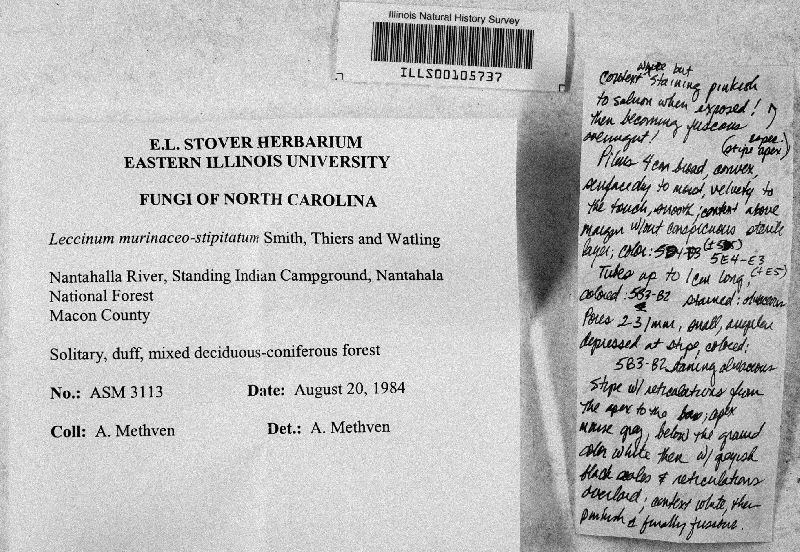 Illinois Natural History Survey
ILLS00105737
E.L. STOVER HERBARIUM
EASTERN ILLINOIS UNIVERSITY
FUNGI OF NORTH CAROLINA
Leccinum murinaceo-stipitatum Smith, Thiers and Watling
Nantahalla River, Standing Indian Campground, Nantahala
National Forest
Macon County
Solitary, duff, mixed deciduous-coniferous forest
No.: ASM 3113 Date: August 20, 1984
Coll: A. Methven Det.: A. Methven
white but
Context staining pinkish
to salmon when exposed!
then becoming fuscous
overnight! (espec.
stipe apex)
Pileus 4 cm broad, convex,
surface dry to moist, velvety to
the touch, smooth, context above
margin w/out conspicuous sterile
layer; color:
5E4-E3
Tubes up to 1 cm long, (+E5)
colored: 5B3-B2 stained:
Pores 2-3/mm, small, angular
depressed at stipe, colored:
5B3-B2 staining
Stipe w/ reticulations from
the apex to the base; apex
mouse gray, below the ground
color white then w/ grayish
black scales & reticulations
overlaid; context white, then
pinkish & finally fuscous.